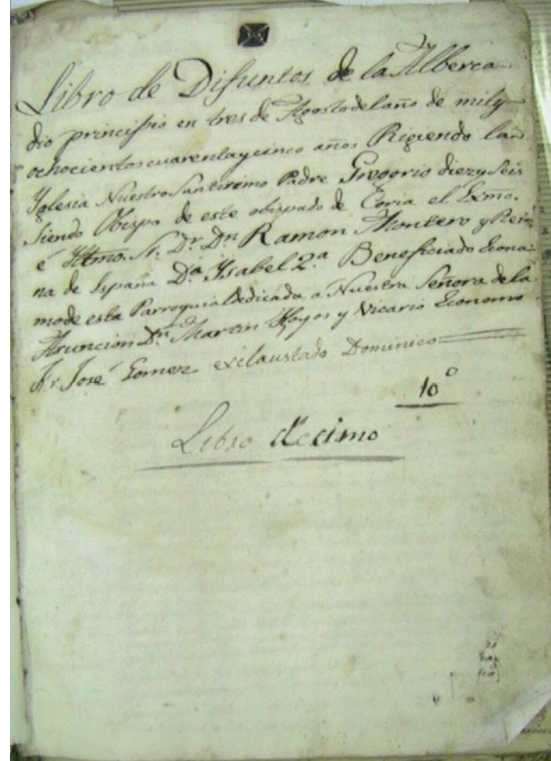 Libro de Difuntos de la Alberca
dio principio en tres de Agosto del año de mil y
ochocientos cuarenta y cinco años Rigiendo la
Yglesia Nuestro Santisimo Padre Gregorio diez y Seis
Siendo Obispo de este obispado de Coria el Exmo.
é Yltmo. Sr. Dr. Dn. Ramon Montero y Rei
na de España Da. Ysabel 2.a Beneficiado Econo
mo de esta Parroquia Dedicada a Nuestra Señora de la
Asuncion Dn. Martin Hoyos y Vicario Economo
Fr. José Gomez exclaustado Dominico
10º
Libro décimo